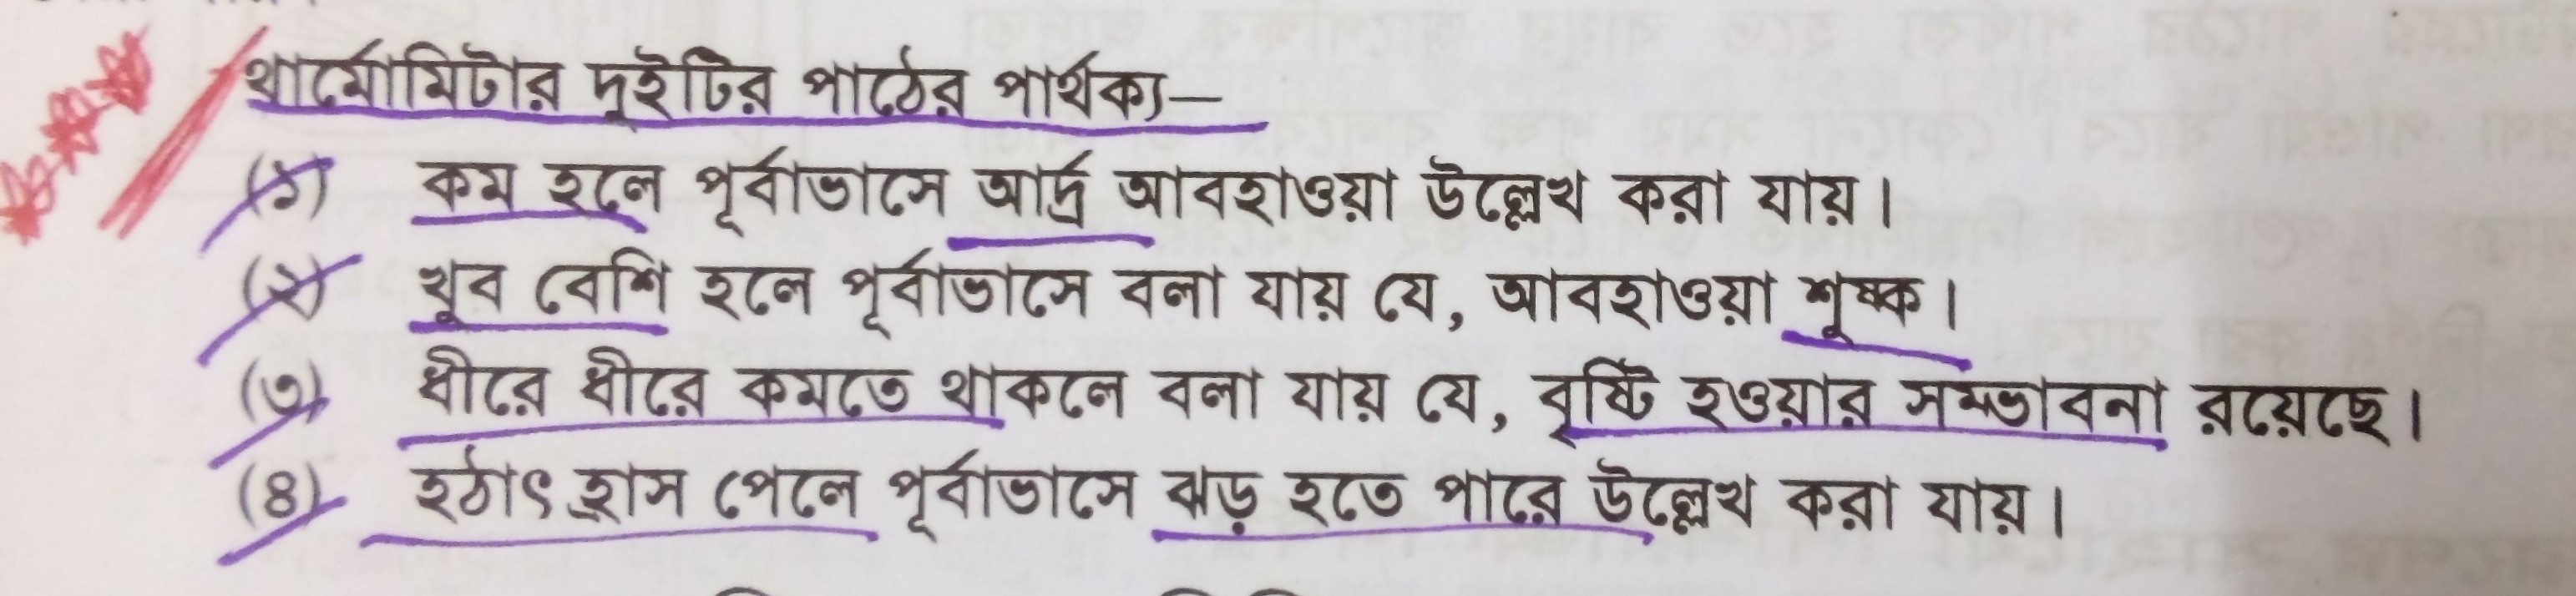 থার্মোমিটার দুইটির পাঠের পার্থক্য—
(১) কম হলে পূর্বাভাসে আর্দ্র আবহাওয়া উল্লেখ করা যায়।
(২) খুব বেশি হলে পূর্বাভাসে বলা যায় যে, আবহাওয়া শুষ্ক।
(৩) ধীরে ধীরে কমতে থাকলে বলা যায় যে, বৃষ্টি হওয়ার সম্ভাবনা রয়েছে।
(৪) হঠাৎ হ্রাস পেলে পূর্বাভাসে ঝড় হতে পারে উল্লেখ করা যায়।